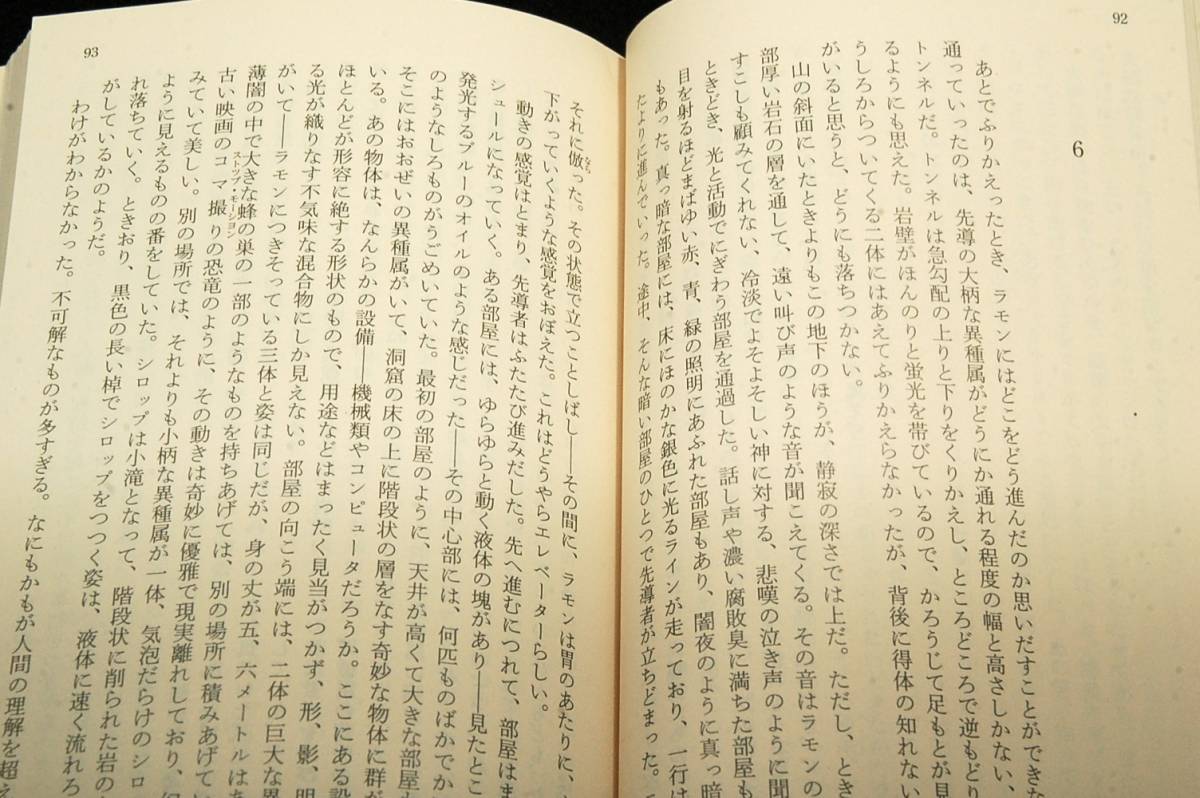 92
6
あとでふりかえったとき、ラモンにはどこをどう進んだのか思いだすことができな
通っていったのは、先導の大柄な異種属がどうにか通れる程度の幅と高さしかない、
トンネルだ。トンネルは急勾配の上りと下りをくりかえし、ところどころで逆もどり
るようにも思えた。岩壁がほんのりと蛍光を帯びているので、かろうじて足もとが見
うしろからついてくる二体にはあえてふりかえらなかったが、背後に得体の知れない
がいると思うと、どうにも落ちつかない。
山の斜面にいたときよりもこの地下のほうが、静寂の深さでは上だ。ただし、とき
部厚い岩石の層を通して、遠い叫び声のような音が聞こえてくる。その音はラモンの
すこしも顧みてくれない、冷淡でよそよそしい神に対する、悲嘆の泣き声のように聞
ときどき、光と活動でにぎわう部屋を通過した。話し声や濃い腐敗臭に満ちた部屋も
目を射るほどまばゆい赤、青、緑の照明にあふれた部屋もあり、闇夜のように真っ暗
もあった。真っ暗な部屋には、床にほのかな銀色に光るラインが走っており、一行は
たよりに進んでいった。途中、そんな暗い部屋のひとつで先導者が立ちどまった。
93
それに倣った。その状態で立つことしばし――その間に、ラモンは胃のあたりに、
下がっていくような感覚をおぼえた。これはどうやらエレベーターらしい。
動きの感覚はとまり、先導者はふたたび進みだした。先へ進むにつれて、部屋はま
シュールになっていく。ある部屋には、ゆらゆらと動く液体の塊があり――見たとこ
発光するブルーのオイルのような感じだった――その中心部には、何匹ものばかでか
のようなしろものがうごめいていた。最初の部屋のように、天井が高くて大きな部屋
そこにはおおぜいの異種属がいて、洞窟の床の上に階段状の層をなす奇妙な物体に群が
いる。あの物体は、なんらかの設備――機械類やコンピュータだろうか。ここにある設
ほとんどが形容に絶する形状のもので、用途などはまったく見当がつかず、形、影、明
る光が織りなす不気味な混合物にしか見えない。部屋の向こう端には、二体の巨大な異
がいて――ラモンにつきそっている三体と姿は同じだが、身の丈が五、六メートルはあ
薄闇の中で大きな蜂の巣の一部のようなものを持ちあげては、別の場所に積みあげてい
古い映画のコマ撮りの恐竜のように、その動きは奇妙に優雅で現実離れしており、
みていて美しい。別の場所では、それよりも小柄な異種属が一体、気泡だらけのシロ
ように見えるものの番をしていた。シロップは小滝となって、階段状に削られた岩の
れ落ちていく。ときおり、黒色の長い棹でシロップをつつく姿は、液体に速く流れろ
がしているかのようだ。
わけがわからなかった。不可解なものが多すぎる。なにもかもが人間の理解を超え